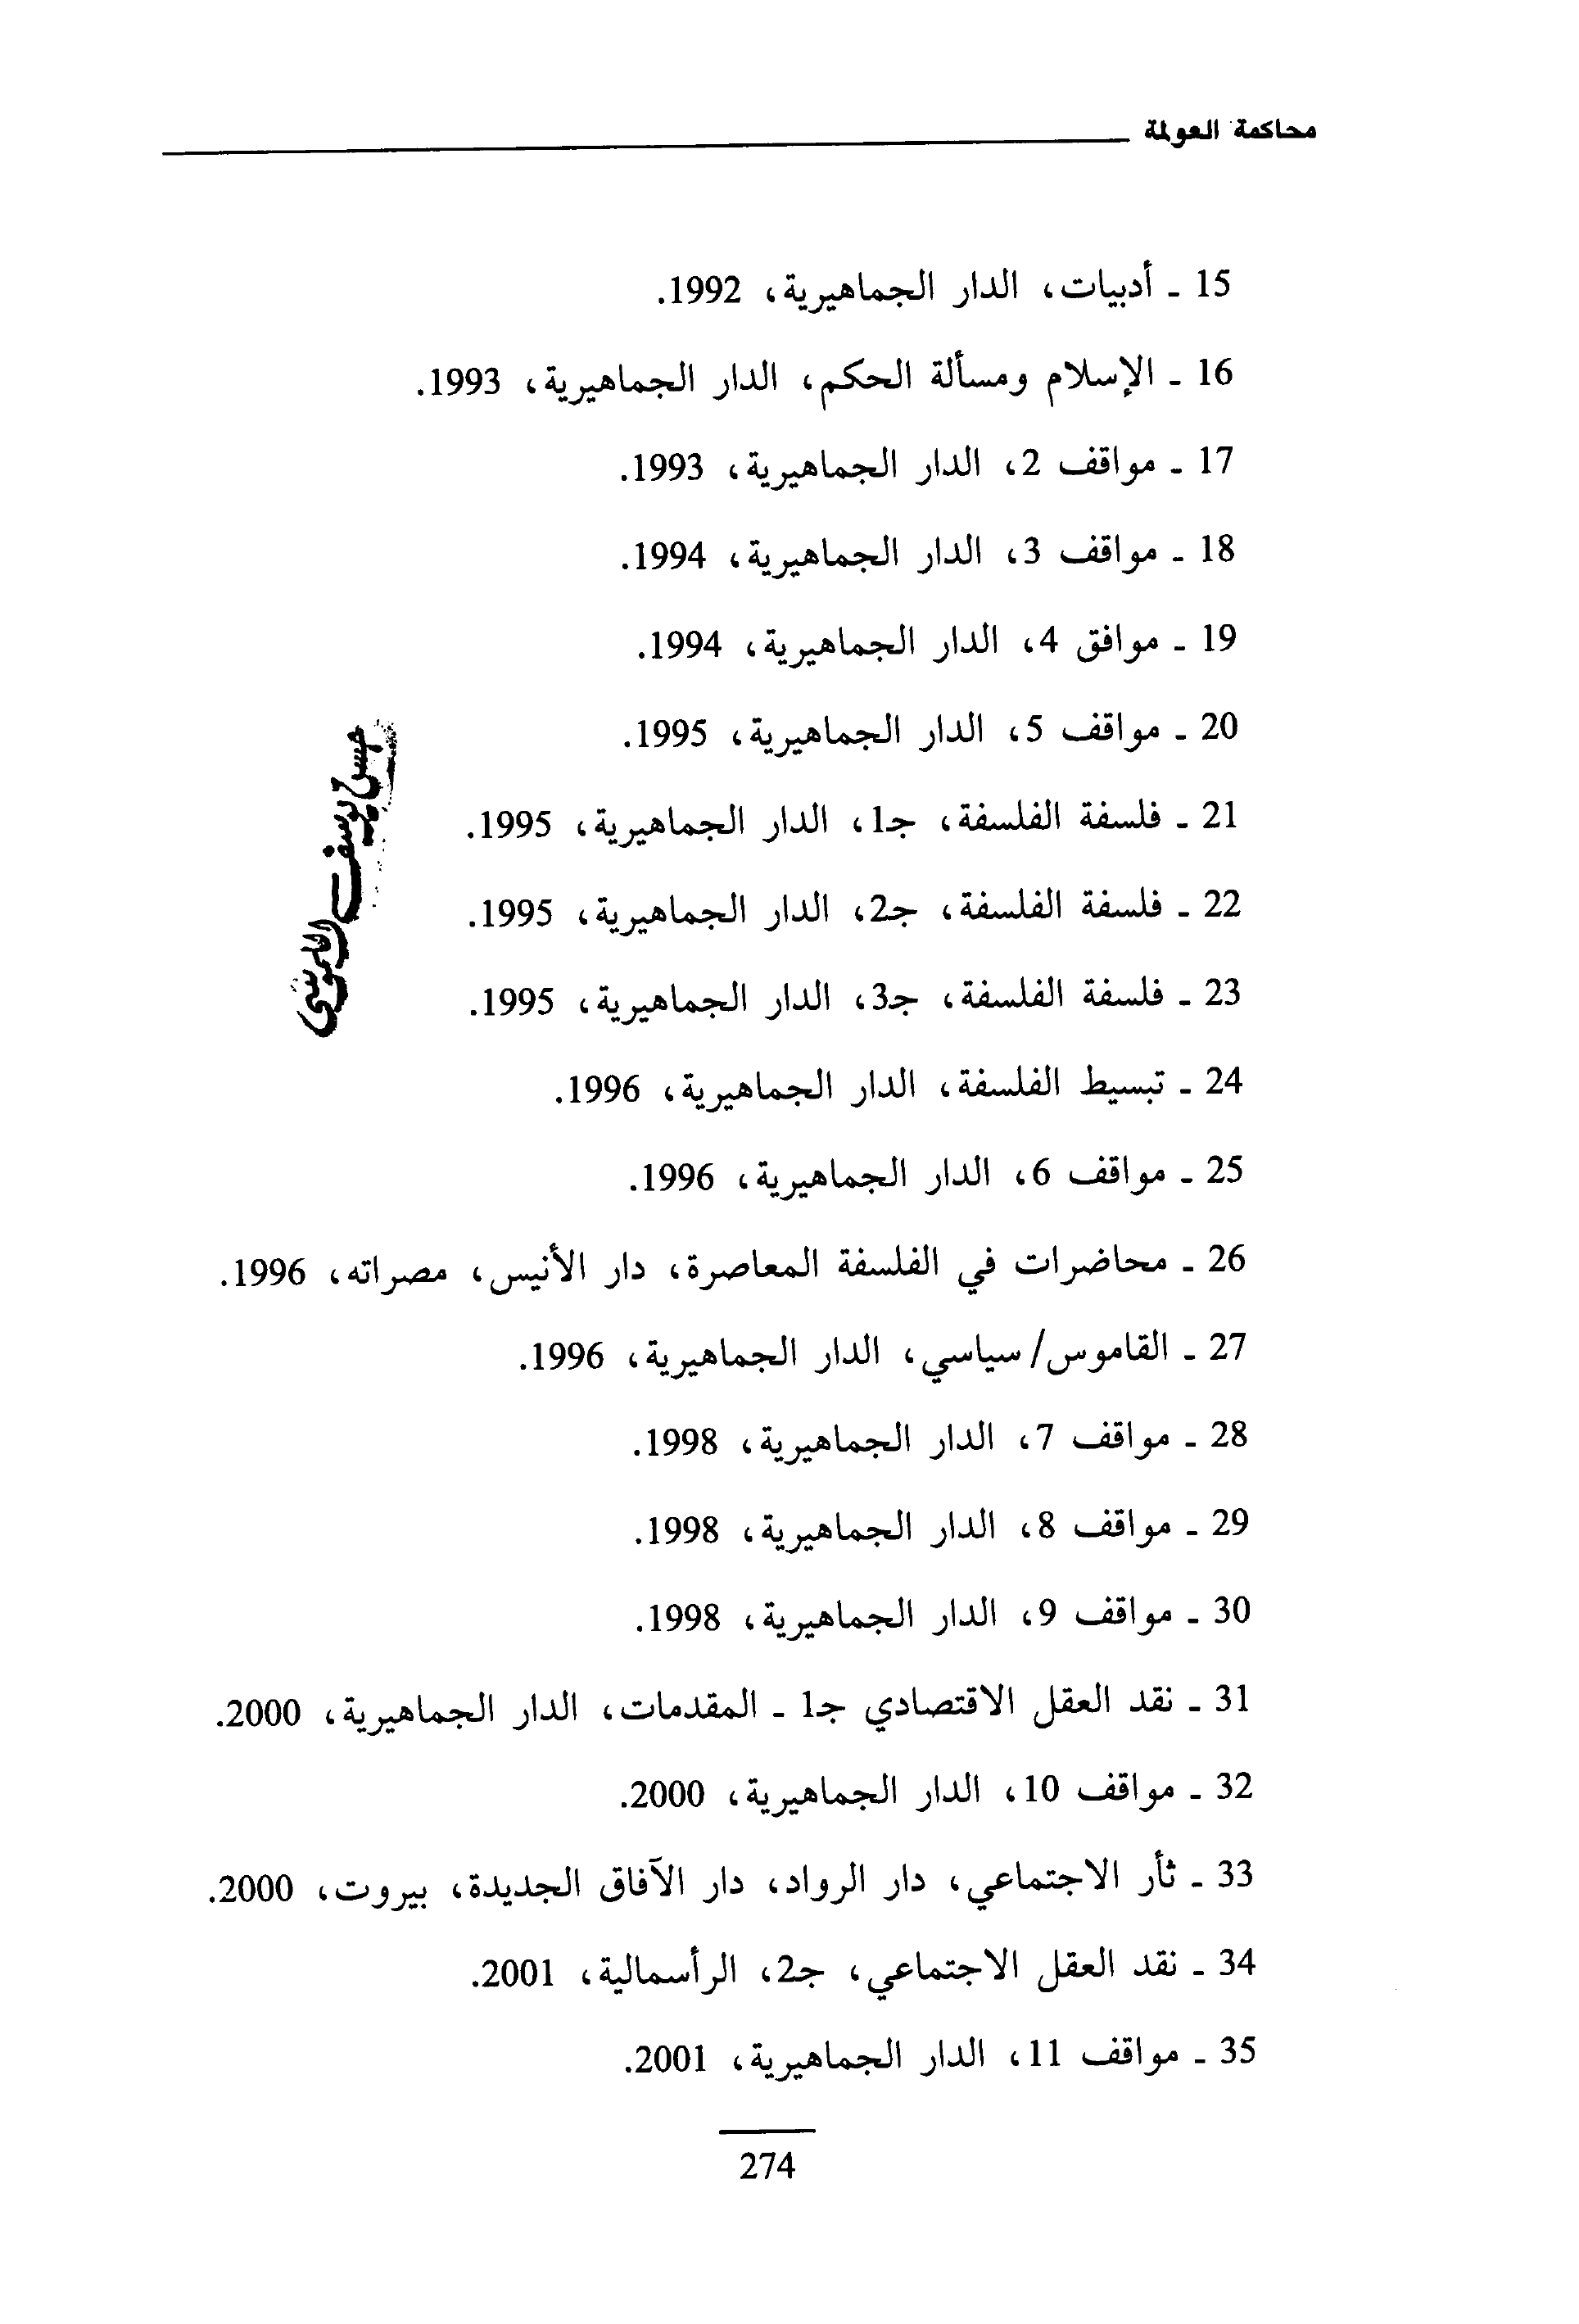 محاكمة العولمة
15 ـ أدبيات، الدار الجماهيرية، 1992.
16 ـ الإسلام ومسألة الحكم، الدار الجماهيرية، 1993.
17 ـ مواقف 2، الدار الجماهيرية، 1993.
18 ـ مواقف 3، الدار الجماهيرية، 1994.
19 ـ موافق 4، الدار الجماهيرية، 1994.
20 ـ مواقف 5، الدار الجماهيرية، 1995.
21 ـ فلسفة الفلسفة، جـ1، الدار الجماهيرية، 1995.
22 ـ فلسفة الفلسفة، جـ2، الدار الجماهيرية، 1995.
23 ـ فلسفة الفلسفة، جـ3، الدار الجماهيرية، 1995.
24 ـ تبسيط الفلسفة، الدار الجماهيرية، 1996.
25 ـ مواقف 6، الدار الجماهيرية، 1996.
26 ـ محاضرات في الفلسفة المعاصرة، دار الأنيس، مصراته، 1996.
27 ـ القاموس/سياسي، الدار الجماهيرية، 1996.
28 ـ مواقف 7، الدار الجماهيرية، 1998.
29 ـ مواقف 8، الدار الجماهيرية، 1998.
30 ـ مواقف 9، الدار الجماهيرية، 1998.
31 ـ نقد العقل الاقتصادي جـ1 ـ المقدمات، الدار الجماهيرية، 2000.
32 ـ مواقف 10، الدار الجماهيرية، 2000.
33 ـ ثأر الاجتماعي، دار الرواد، دار الآفاق الجديدة، بيروت، 2000.
34 ـ نقد العقل الاجتماعي، جـ2، الرأسمالية، 2001.
35 ـ مواقف 11، الدار الجماهيرية، 2001.
يوسف
274